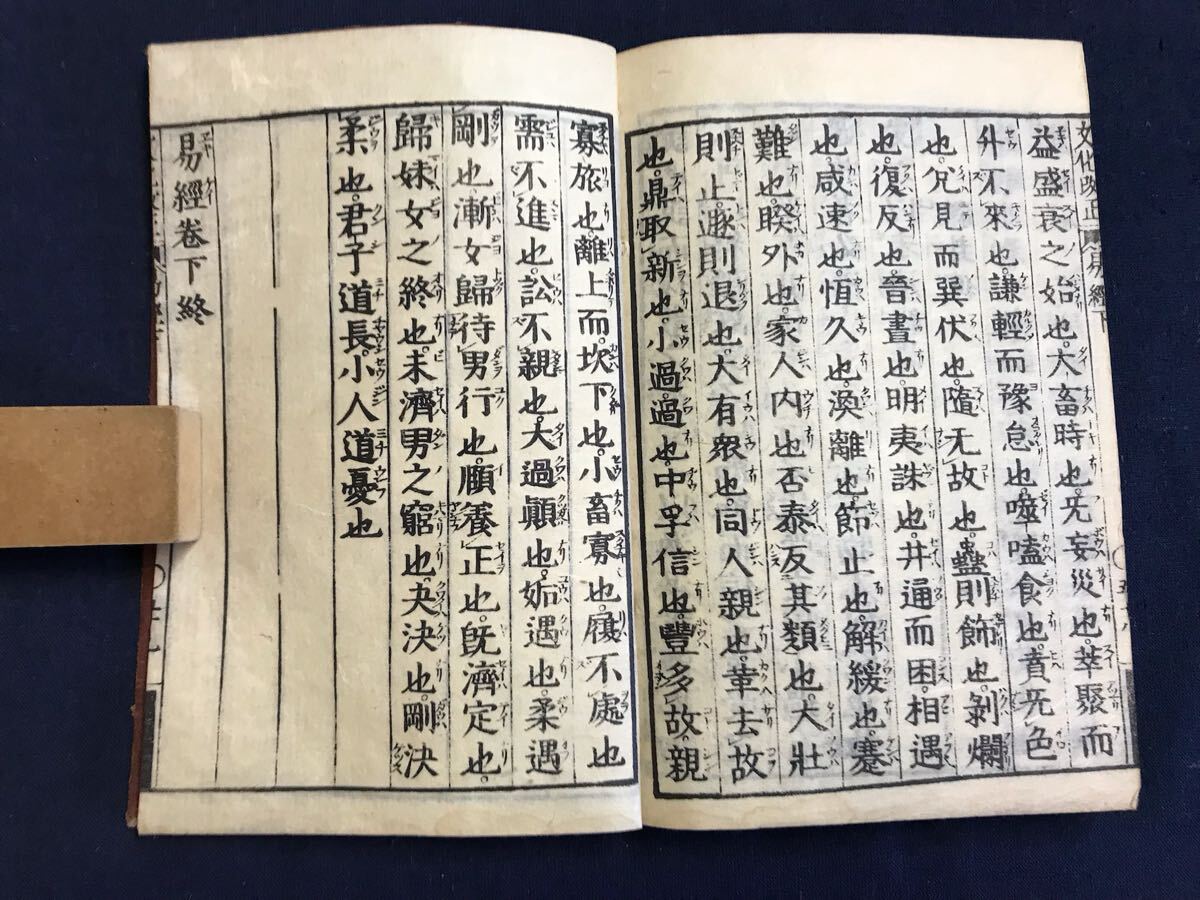 益盛衰之始也大畜時也无妄災也萃聚而
升不來也謙輕而豫怠也噬嗑食也賁无色
也兌見而巽伏也隨无故也蠱則飾也剝爛
也復反也晉晝也明夷誅也井通而困相遇
也咸速也恆久也渙離也節止也解緩也蹇
難也睽外也家人内也否泰反其類也大壯
則止遯則退也大有衆也同人親也革去故
也鼎取新也小過過也中孚信也豐多故親
寡旅也離上而坎下也小畜寡也履不處也
需不進也訟不親也大過顚也姤遇也柔遇
剛也漸女歸待男行也頤養正也旣濟定也
歸妹女之終也未濟男之窮也夬決也剛決
柔也君子道長小人道憂也
易經卷下終